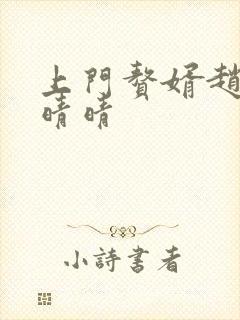 上門贅婿趙
晴晴
小詩書者